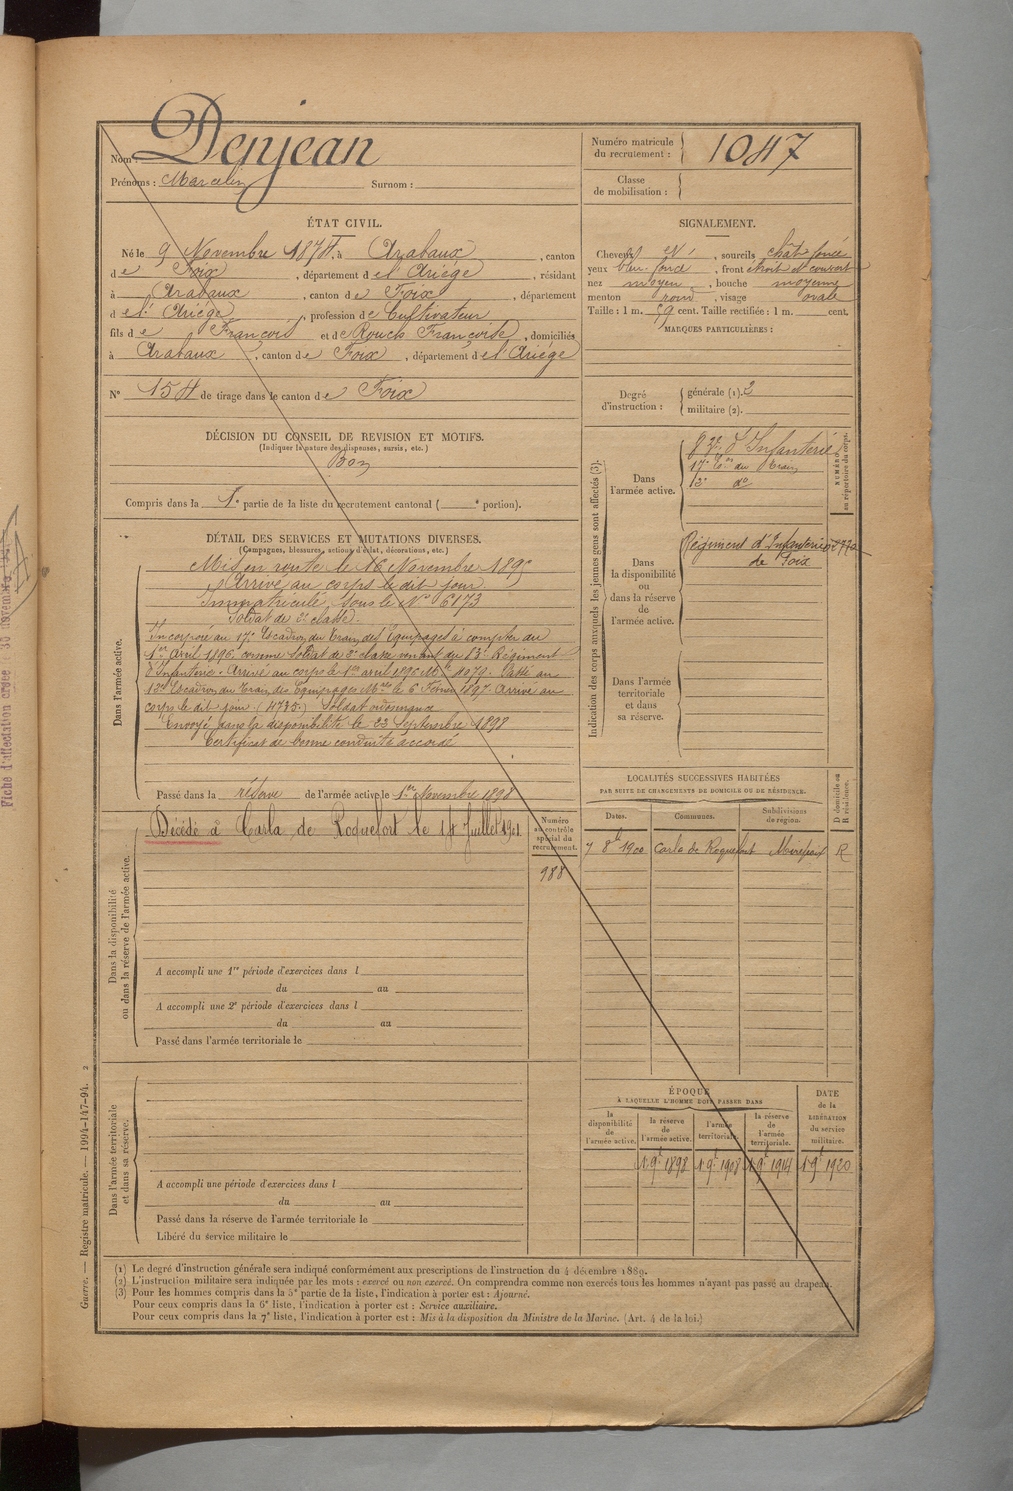 Denjean
Nom :
Prénoms : Marcelin Surnom :
Numéro matricule
du recrutement : 1047
Classe
de mobilisation :
ÉTAT CIVIL.
Né le 9 Novembre 1874, à Arabaux, canton
de Foix, département de l'Ariège, résidant
à Arabaux, canton de Foix, département
de l'Ariège, profession de Cultivateur
fils de François et de Rouch Françoise, domiciliés
à Arabaux, canton de Foix, département de l'Ariège
N° 154 de tirage dans le canton de Foix
SIGNALEMENT.
Cheveux , sourcils chât foncé
yeux bleu foncé, front étroit et couvert
nez moyen, bouche moyenne
menton rond, visage ovale
Taille : 1 m. 59 cent. Taille rectifiée : 1 m. cent.
MARQUES PARTICULIÈRES :
Degré
d'instruction :
générale (1). 2
militaire (2).
DÉCISION DU CONSEIL DE REVISION ET MOTIFS.
(Indiquer la nature des dispenses, sursis, etc.)
Bon
Compris dans la 1e partie de la liste du recrutement cantonal ( e portion).
DÉTAIL DES SERVICES ET MUTATIONS DIVERSES.
(Campagnes, blessures, actions d'éclat, décorations, etc.)
Dans l'armée active.
Mis en route le 16 Novembre 1895
Arrivé au corps le dit jour
Immatriculé sous le N° 6173
Soldat de 2e classe.
Incorporé au 17e Escadron du Train des Equipages à compter du
1er Avril 1896 comme soldat de 2e classe venant du 83e Régiment
d'Infanterie. Arrivé au corps le 1er avril 1896 Mle 4079. Passé au
13e Escadron du Train des Equipages Mres le 6 Février 1897 Arrivé au
corps le dit jour (4735) Soldat ordonnance
Envoyé dans la disponibilité le 23 Septembre 1898
Certificat de bonne conduite accordé
Passé dans la réserve de l'armée active le 1er Novembre 1898
Indication des corps auxquels les jeunes gens sont affectés (3).
NUMÉRO
au répertoire du corps.
Dans
l'armée active.
83e d'Infanterie
17e Eon du Train
13e do
Dans
la disponibilité
ou
dans la réserve
de
l'armée active.
Régiment d'Infanterie
de Foix
Dans l'armée
territoriale
et dans
sa réserve.
Dans la disponibilité
ou dans la réserve de l'armée active.
Décédé à Carla de Roquefort le 14 Juillet 1901.
Numéro
au contrôle
spécial du
recrutement.
988
A accompli une 1re période d'exercices dans l
du au
A accompli une 2e période d'exercices dans l
du au
Passé dans l'armée territoriale le
LOCALITÉS SUCCESSIVES HABITÉES
PAR SUITE DE CHANGEMENTS DE DOMICILE OU DE RÉSIDENCE.
D domicile ou
R résidence.
Dates. Communes. Subdivisions
de région.
7 8bre 1900 Carla de Roquefort Mirepoix R
Dans l'armée territoriale
et dans sa réserve.
A accompli une période d'exercices dans l
du au
Passé dans la réserve de l'armée territoriale le
Libéré du service militaire le
ÉPOQUE
À LAQUELLE L'HOMME DOIT PASSER DANS
la
disponibilité
de
l'armée active.
la réserve
de
l'armée active.
l'armée
territoriale.
la réserve
de
l'armée
territoriale.
DATE
de la
LIBÉRATION
du service
militaire.
1 9bre 1898 1 9bre 1908 1 9bre 1914 1 9bre 1920
(1) Le degré d'instruction générale sera indiqué conformément aux prescriptions de l'instruction du 4 décembre 1889.
(2) L'instruction militaire sera indiquée par les mots : exercé ou non exercé. On comprendra comme non exercés tous les hommes n'ayant pas passé au drapeau.
(3) Pour les hommes compris dans la 5e partie de la liste, l'indication à porter est : Ajourné.
Pour ceux compris dans la 6e liste, l'indication à porter est : Service auxiliaire.
Pour ceux compris dans la 7e liste, l'indication à porter est : Mis à la disposition du Ministre de la Marine. (Art. 4 de la loi.)
Guerre. — Registre matricule. — 1994-147-94. 2
Fiche d'affectation créée le 30 novembre